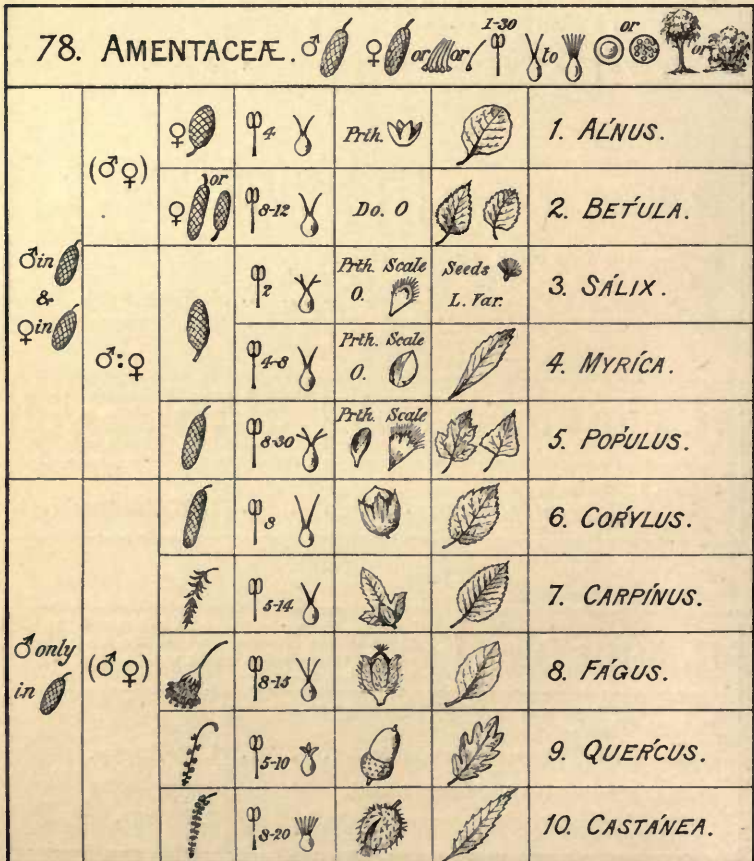 78. AMENTACEÆ. ♂ ♀ or or 1-30 to or or
♂ in & ♀ in
(♂♀)
♀ 4 Prth. 1. ALŃUS.
♀ or 8-12 Do. O 2. BET́ULA.
♂:♀
2 Prth. Scale O. Seeds L. Var. 3. SÁLIX.
4-8 Prth. Scale O. 4. MYRÍCA.
8-30 Prth. Scale 5. POṔULUS.
♂ only in
(♂♀)
8 6. CORÝLUS.
5-14 7. CARPÍNUS.
8-15 8. FÁGUS.
5-10 9. QUERĆUS.
8-20 10. CASTÁNEA.